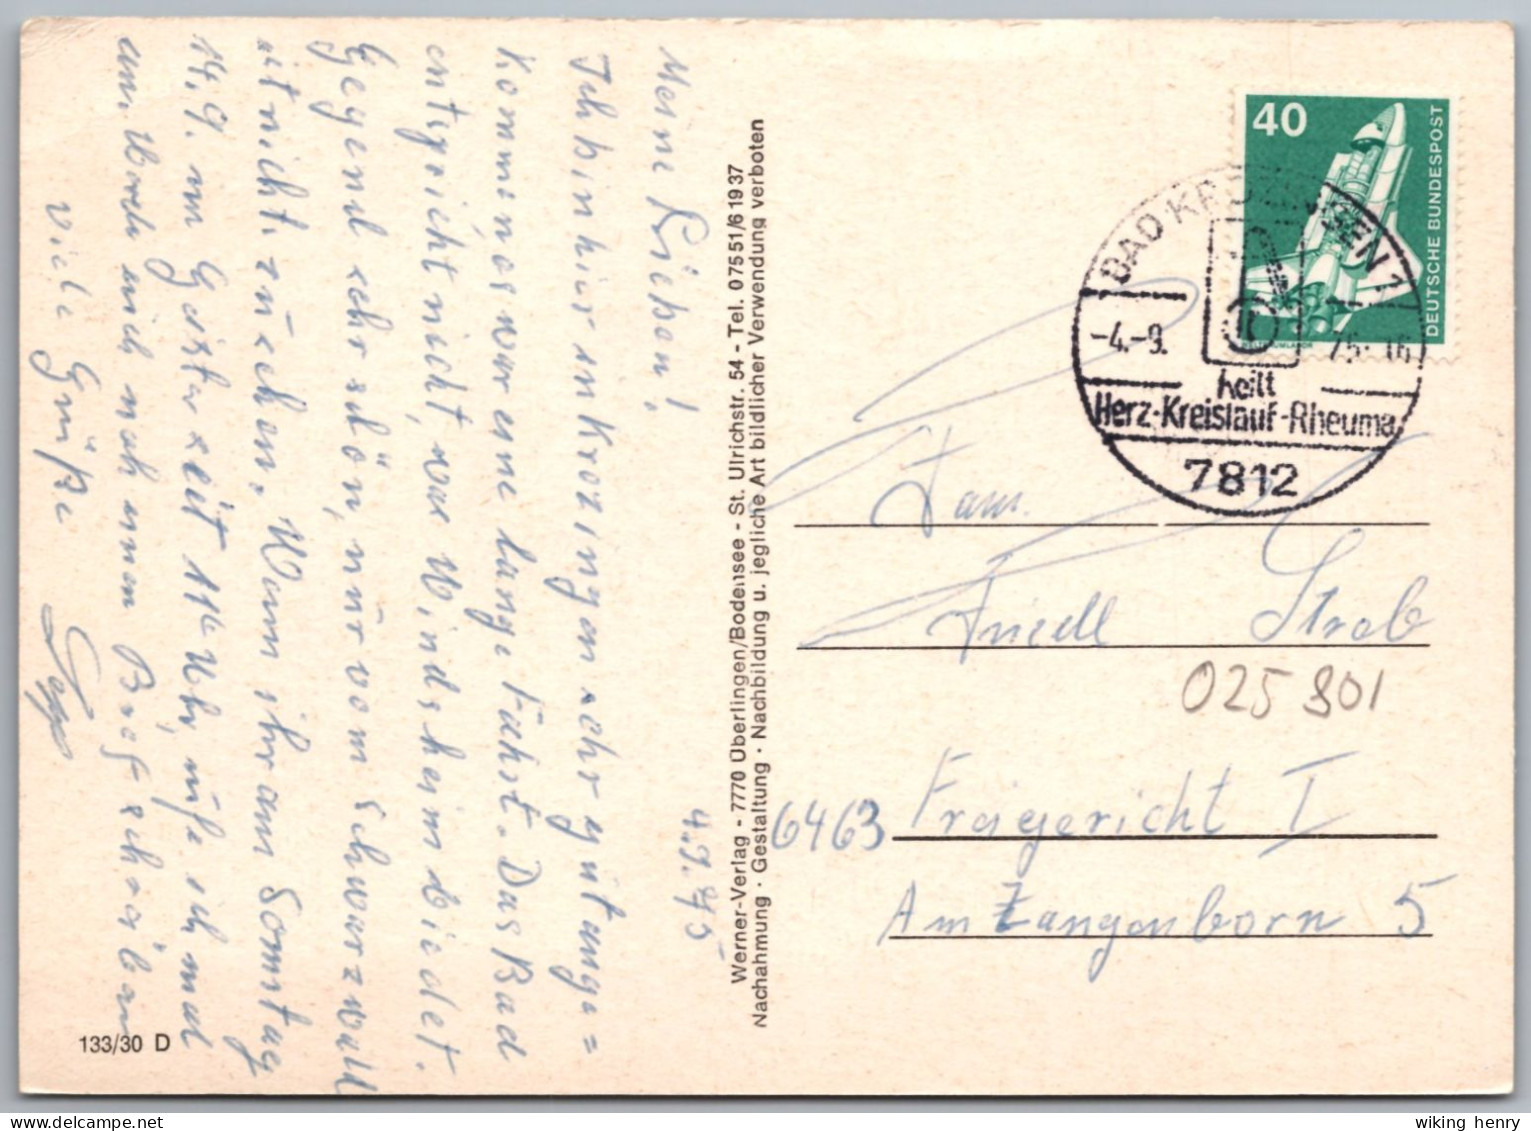 Meine Lieben!
4.9.75
Ich bin hier in Krozingen sehr gut ange=
kommen, es war eine lange Fahrt. Das Bad
entspricht nicht, was Windsheim bietet.
Gegend sehr schön, nur vom Schwarzwald
ist nicht zu sehen. Wenn ihr am Sonntag
14.9. im Geister seit 11 Uhr, rufe ich mal
an. Werde euch noch einen Brief schreiben
Viele Grüße
133/30 D
Werner-Verlag - 7770 Überlingen/Bodensee - St. Ulrichstr. 54 - Tel. 07551/61937
Nachahmung · Gestaltung · Nachbildung u. jegliche Art bildlicher Verwendung verboten
40
DEUTSCHE BUNDESPOST
BAD KROZINGEN 1
-4.-9. 75-16
heilt
Herz-Kreislauf-Rheuma
7812
Fam.
Friedl Strob
025 801
6463 Freigericht I
Am Zangenborn 5
wiking henry